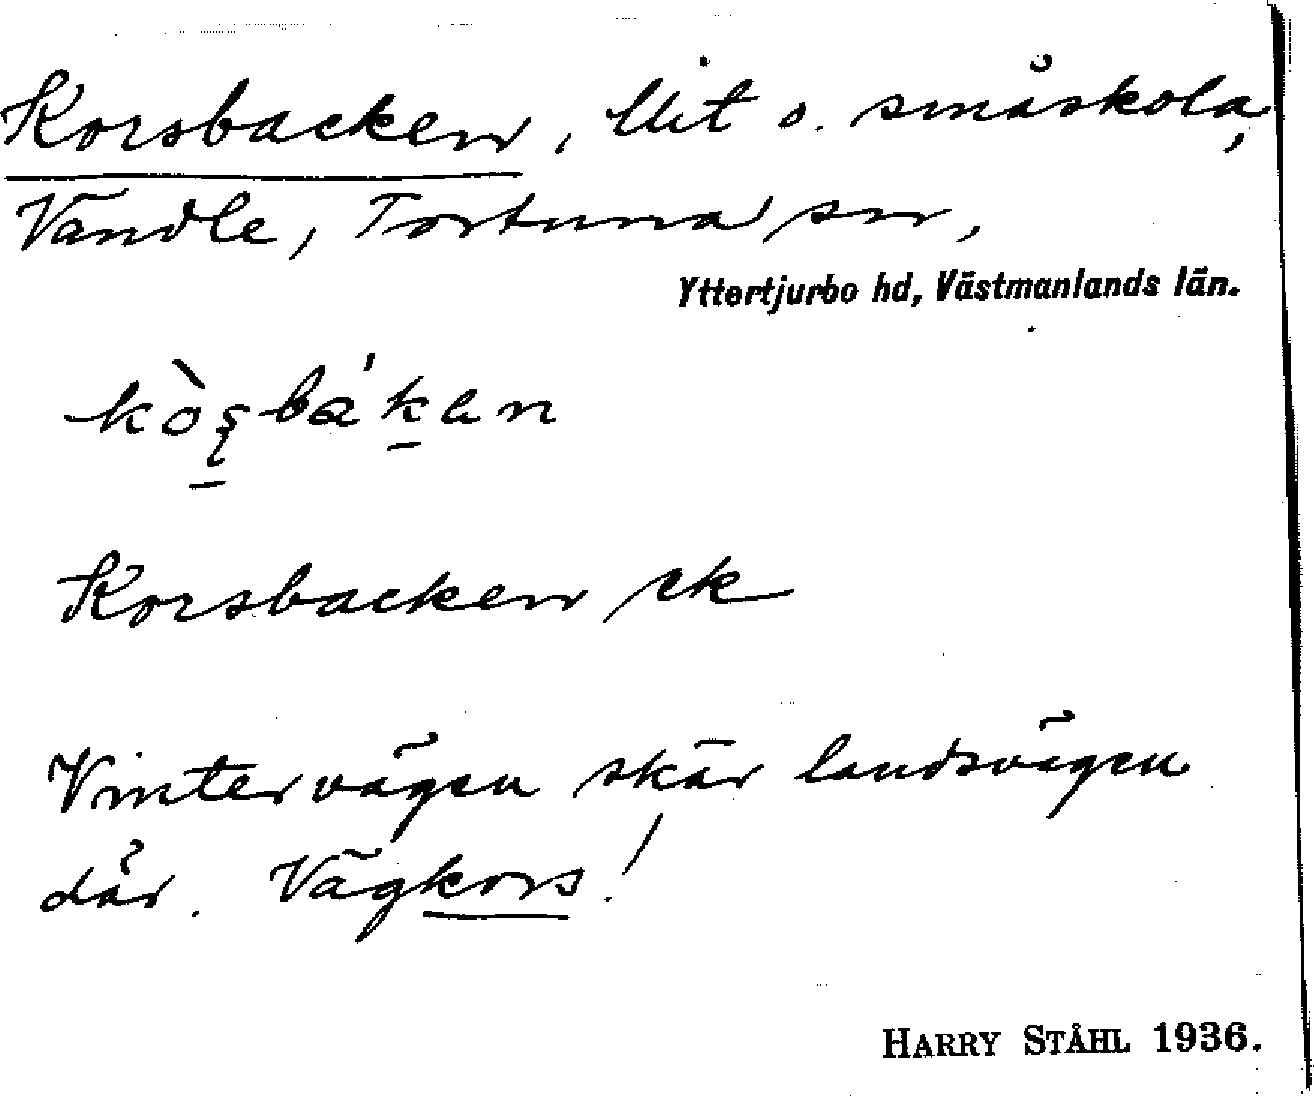 Korsbacken, lht o. småskola,
Vändle, Tortuna sn,
Yttertjurbo hd, Västmanlands län.
kòʂbákan
Korsbacken ek
Vintervägen skär landsvägen
där. Vägkors!
HARRY STÅHL 1936.